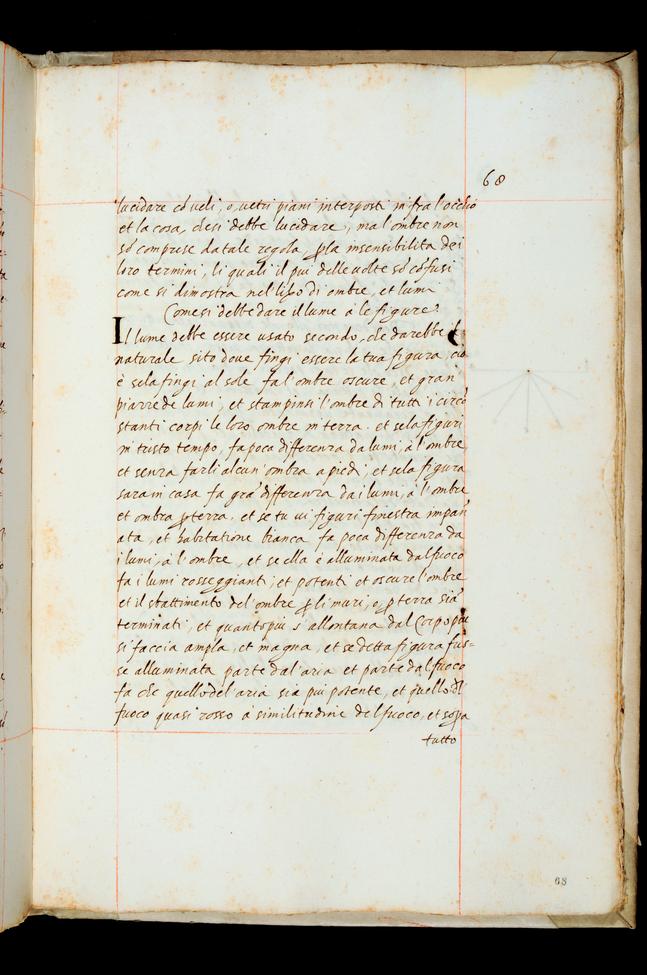 68
lucidare cõ veli, o, vetri piani interposti in fra l'occhio
et la cosa, che si debbe lucidare, ma l'ombre non
sõ comprese da tale regola ꝑ la insensibilita dei
loro termini, li quali il piu delle volte sõ cõfusi
come si dimostra nel libo di ombre, et lumi
Come si debbe dare il lume à le figure
Il lume debbe essere usato secondo, che darebbe il
naturale sito doue fingi essere la tua figura, cio
è se la fingi al sole fa l'ombre oscure, et gran
piazze de lumi, et stampinsi l'ombre di tutti i circõ
stanti corpi le loro ombre in terra. et se la figuri
in tristo tempo, fa poca differenza da lumi, à l'ombre,
et senza farli alcun'ombra a piedi, et se la figura
sara in casa fa grã differenza da i lumi, à l'ombre
et ombra ꝑ terra. et se tu ui figuri finestra impan
ata, et habitatione bianca fa poca differenza da
i lumi, à l'ombre, et se ella è alluminata dal fuoco
fa i lumi rosseggianti, et potenti et oscure l'ombre
et il sbattimento del'ombre ꝑ li muri, o, ꝑ terra siã
terminati, et quanto piu s'allontana dal corpo piu
si faccia ampla, et magna, et se detta figura fus=
se alluminata parte dal'aria et parte dal fuoco
fa che quello del'aria sia piu potente, et quello del
fuoco quasi rosso à similitudine del fuoco, et sopa
tutto
68